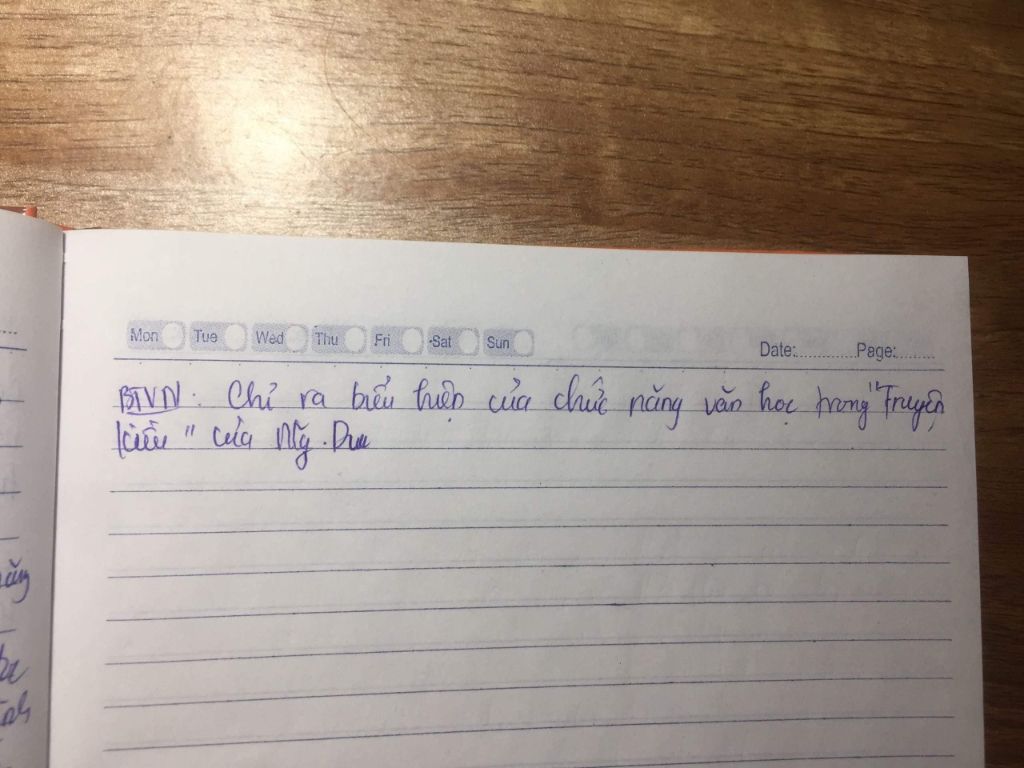 Mon Tue Wed Thu Fri Sat Sun
Date:............Page:........
BTVN : Chỉ ra biểu hiện của chức năng văn học trong "Truyện
Kiều" của Ng. Du